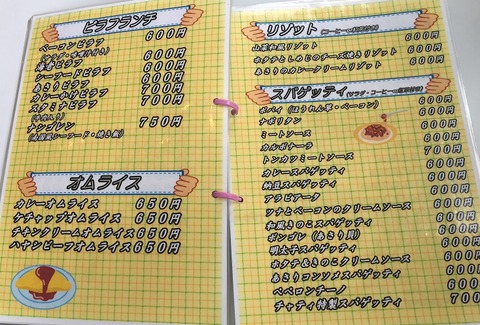 ピラフランチ
ベーコンピラフ 600円
(サラダ・オカズ付き)
海老ピラフ 600円
シーフードピラフ 700円
あさりピラフ 700円
カレーかけピラフ 700円
スタミナピラフ 700円
ナシゴレン 750円
オムライス
カレーオムライス 650円
ケチャップオムライス 650円
チキンクリームオムライス 650円
ハヤシビーフオムライス 650円
リゾット
山菜和風リゾット 600円
ホタテとしめじのチーズ焼きリゾット 600円
あさりのカレークリームリゾット 600円
スパゲッティ
ポパイ(ほうれん草・ベーコン) 600円
ナポリタン 600円
ミートソース 600円
カルボナーラ 700円
トンカツミートソース 600円
カレースパゲッティ 600円
納豆スパゲッティ
アラビアータ
ツナとベーコンのクリームソース
和風きのこスパゲッティ
ボンゴレ(あさり貝)
明太子スパゲッティ
ホタテ&きのこクリームソース
あさりコンソメスパゲッティ
ペペロンチーノ
チャティ特製スパゲッティ 700円